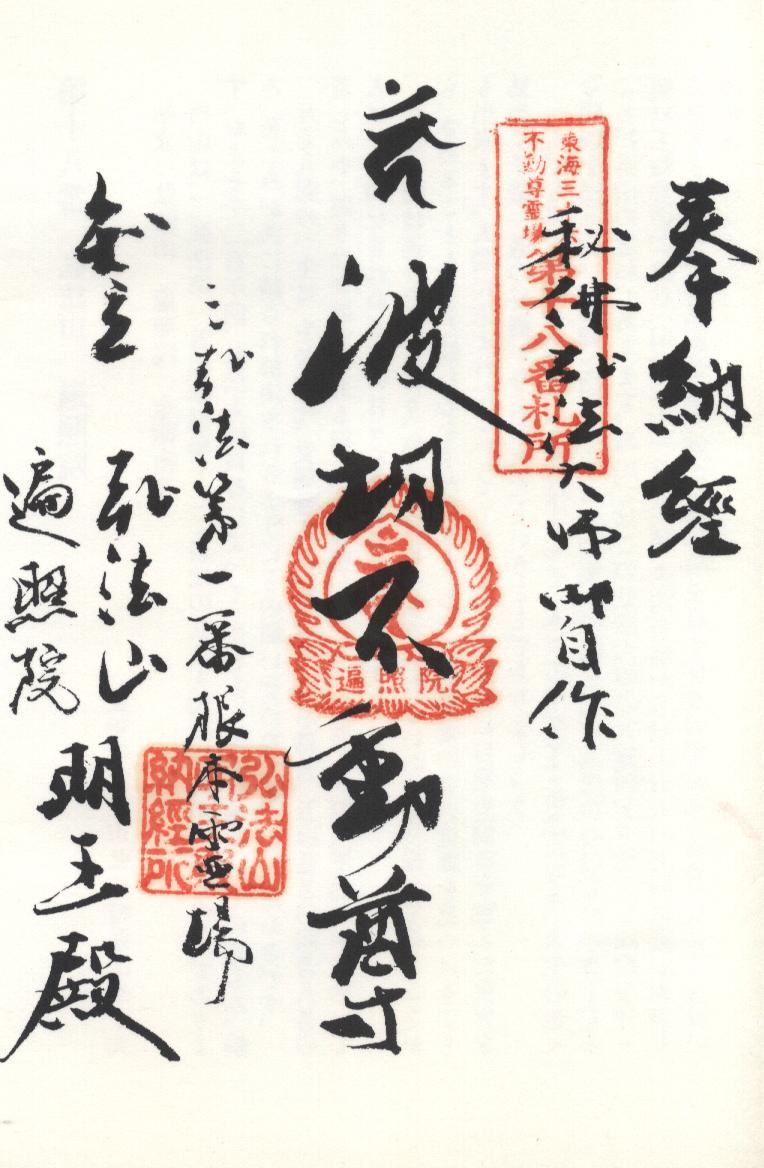 奉納經
秘佛弘法大師御自作
東海三十六
不動尊靈場
第十八番札所
波切不動尊
遍照院
三弘法第一番根本靈場
弘法山
納經所
知立 弘法山
遍照院 明王殿